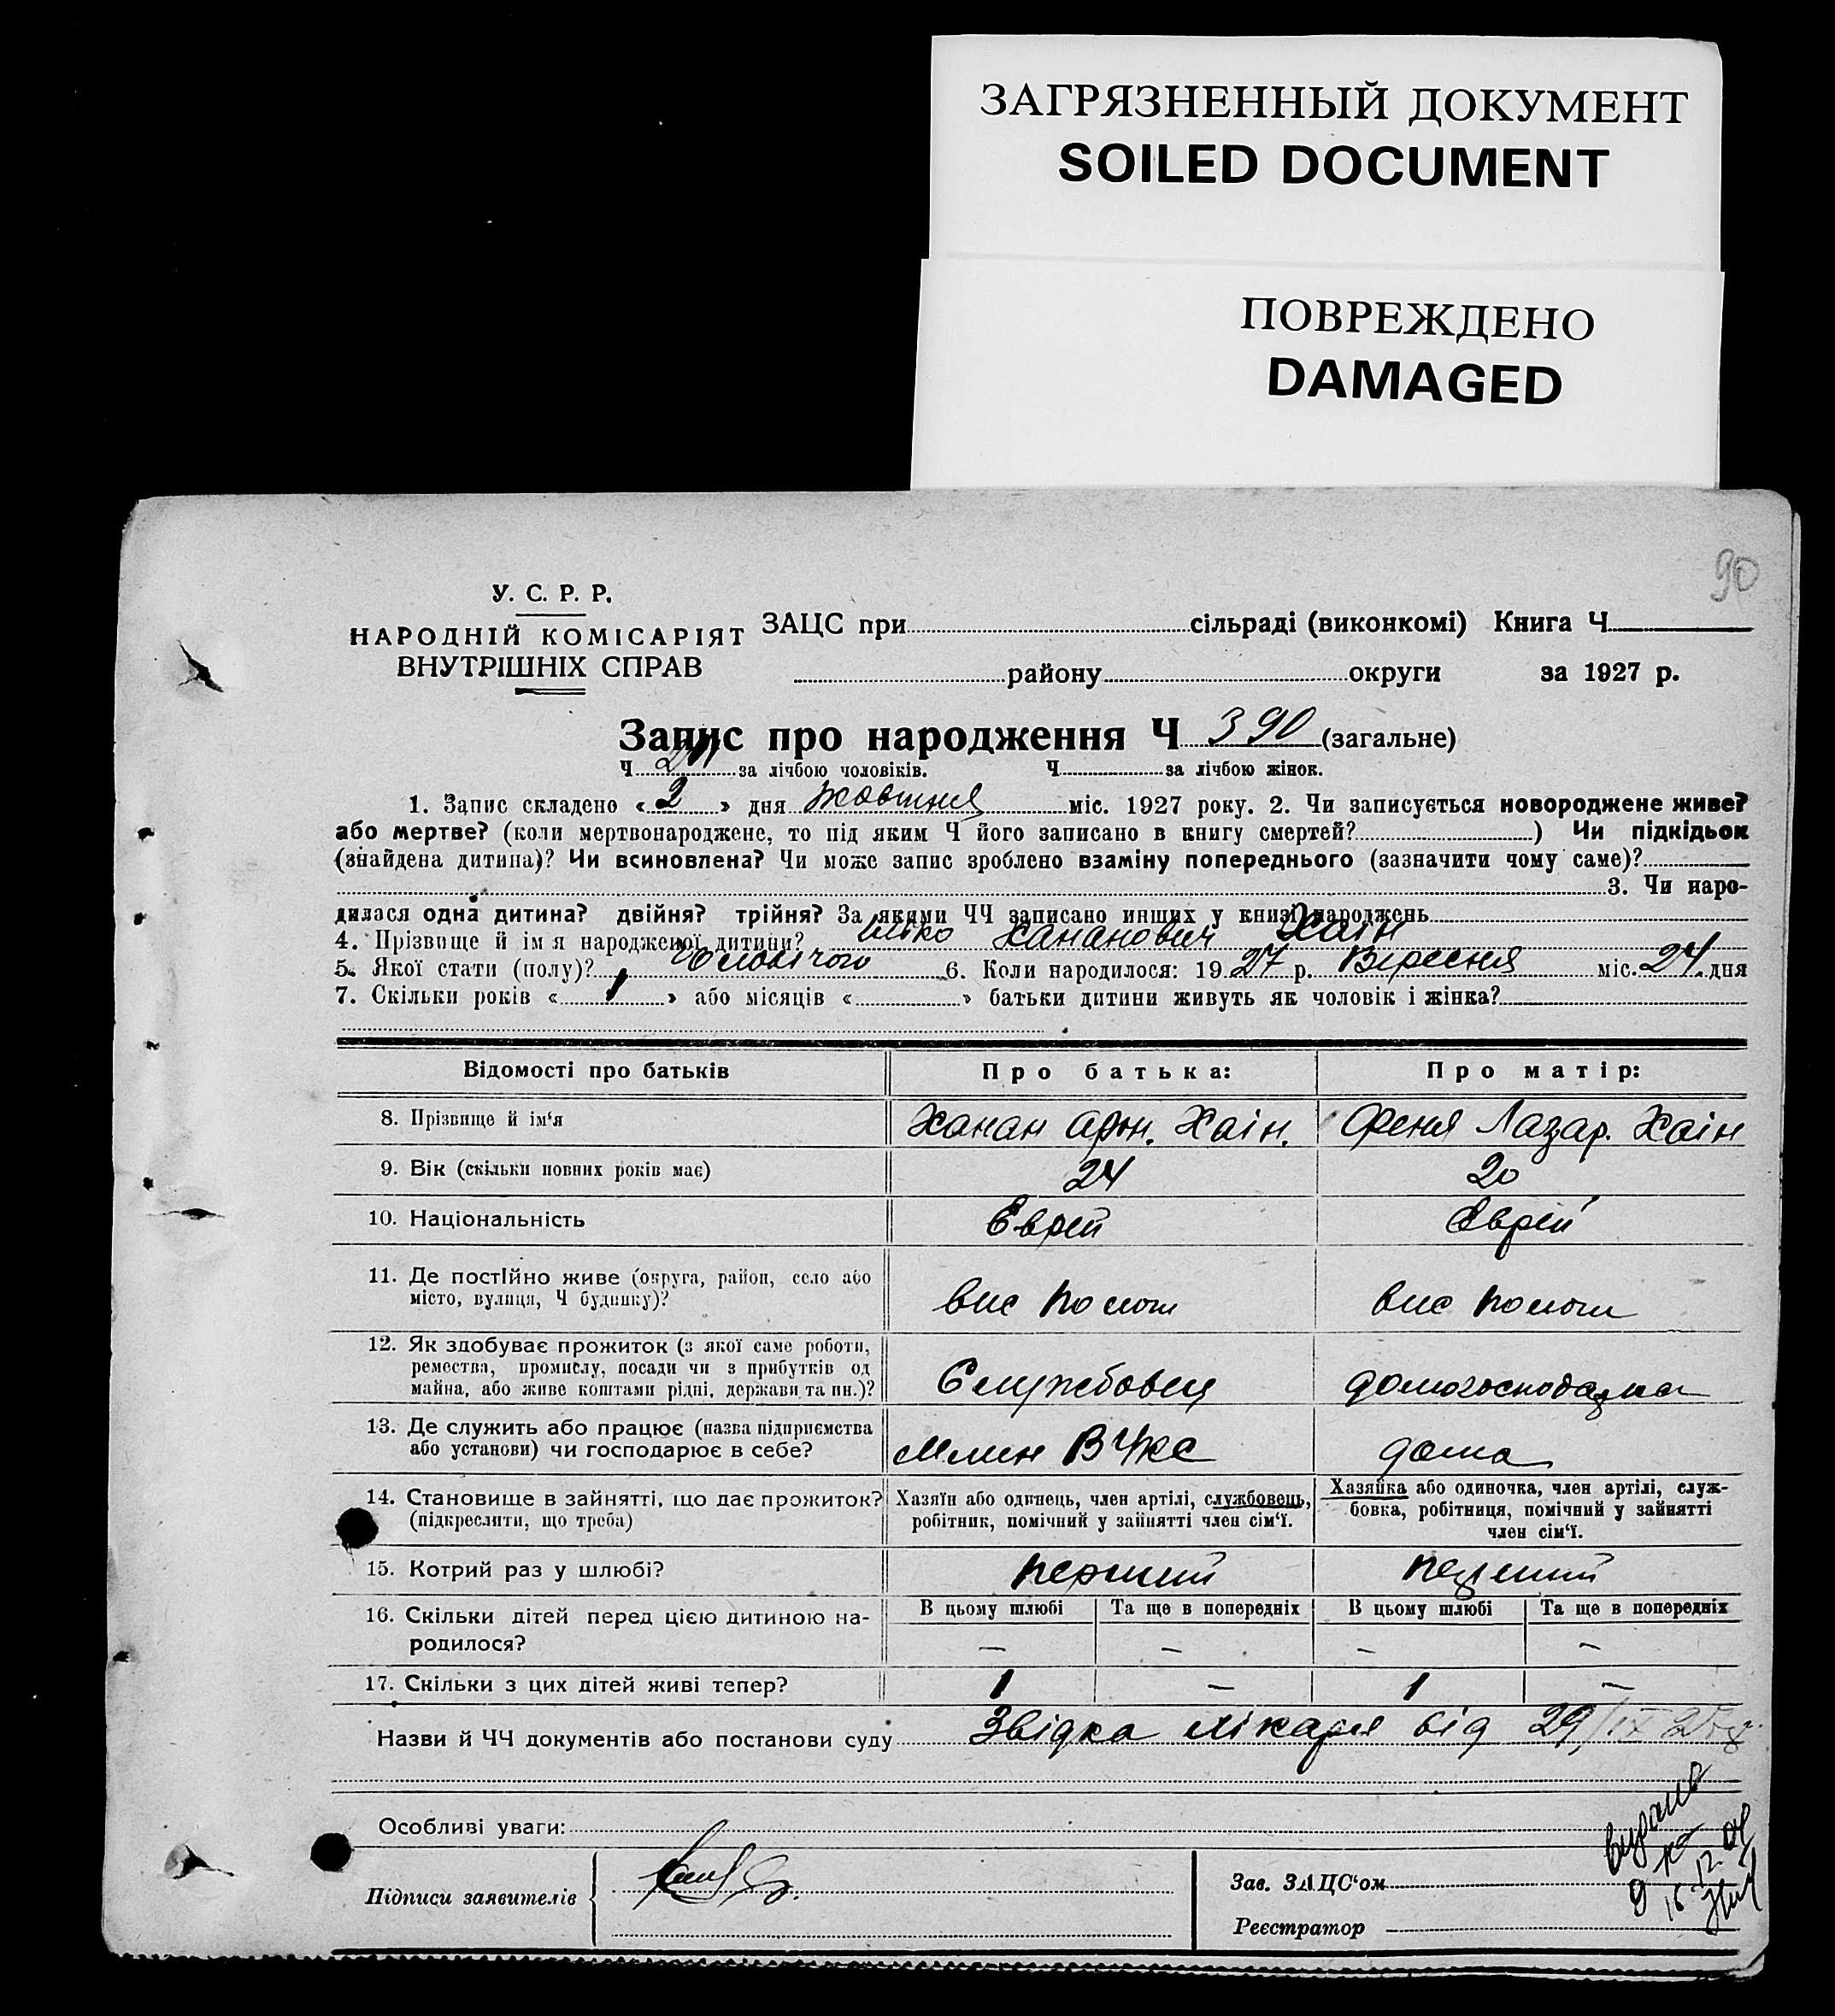 ЗАГРЯЗНЕННЫЙ ДОКУМЕНТ
SOILED DOCUMENT
ПОВРЕЖДЕНО
DAMAGED
90
У. С. Р. Р.
НАРОДНІЙ КОМІСАРІЯТ
ВНУТРІШНІХ СПРАВ
ЗАЦС при сільраді (виконкомі) Книга Ч
району округи за 1927 р.
Запис про народження Ч 390 (загальне)
Ч за лічбою чоловіків. Ч за лічбою жінок.
1. Запис складено «2» дня жовтня міс. 1927 року. 2. Чи записується новороджене живе?
або мертве? (коли мертвонароджене, то під яким Ч його записано в книгу смертей? ) Чи підкідьок
(знайдена дитина)? Чи всиновлена? Чи може запис зроблено взаміну попереднього (зазначити чому саме)?
3. Чи наро-
дилася одна дитина? двійня? трійня? За якими ЧЧ записано инших у книзі народжень
4. Прізвище й імя народженої дитини? Хананович Хаін
5. Якої стати (полу)? Чоловічого 6. Коли народилося: 1927 р. Вересня міс. 24 дня
7. Скільки років «1» або місяців « » батьки дитини живуть як чоловік і жінка?
Відомості про батьків Про батька: Про матір:
8. Прізвище й ім'я Ханан Арон. Хаін. Феня Лазар. Хаін
9. Вік (скільки повних років має) 24 20
10. Національність Єврей Єврей
11. Де постійно живе (округа, район, село або
місто, вулиця, Ч будинку)? вис вис
12. Як здобуває прожиток (з якої саме роботи,
ремества, промислу, посади чи з прибутків од
майна, або живе коштами рідні, держави та ин.)? Службовець домогосподарка
13. Де служить або працює (назва підприємства
або установи) чи господарює в себе? Млин дома
14. Становище в зайнятті, що дає прожиток?
(підкреслити, що треба)
Хазяїн або одинець, член артілі, службовець,
робітник, помічний у зайнятті член сім'ї.
Хазяйка або одиночка, член артілі, служ-
бовка, робітниця, помічний у зайнятті
член сім'ї.
15. Котрий раз у шлюбі? перший перший
16. Скільки дітей перед цією дитиною на-
родилося?
В цьому шлюбі Та ще в попередніх В цьому шлюбі Та ще в попередніх
— — — —
17. Скільки з цих дітей живі тепер? 1 — 1 —
Назви й ЧЧ документів або постанови суду Звідка лікаря від 29/IX
Особливі уваги:
Підписи заявителів
Зав. ЗАЦС'ом
Реєстратор